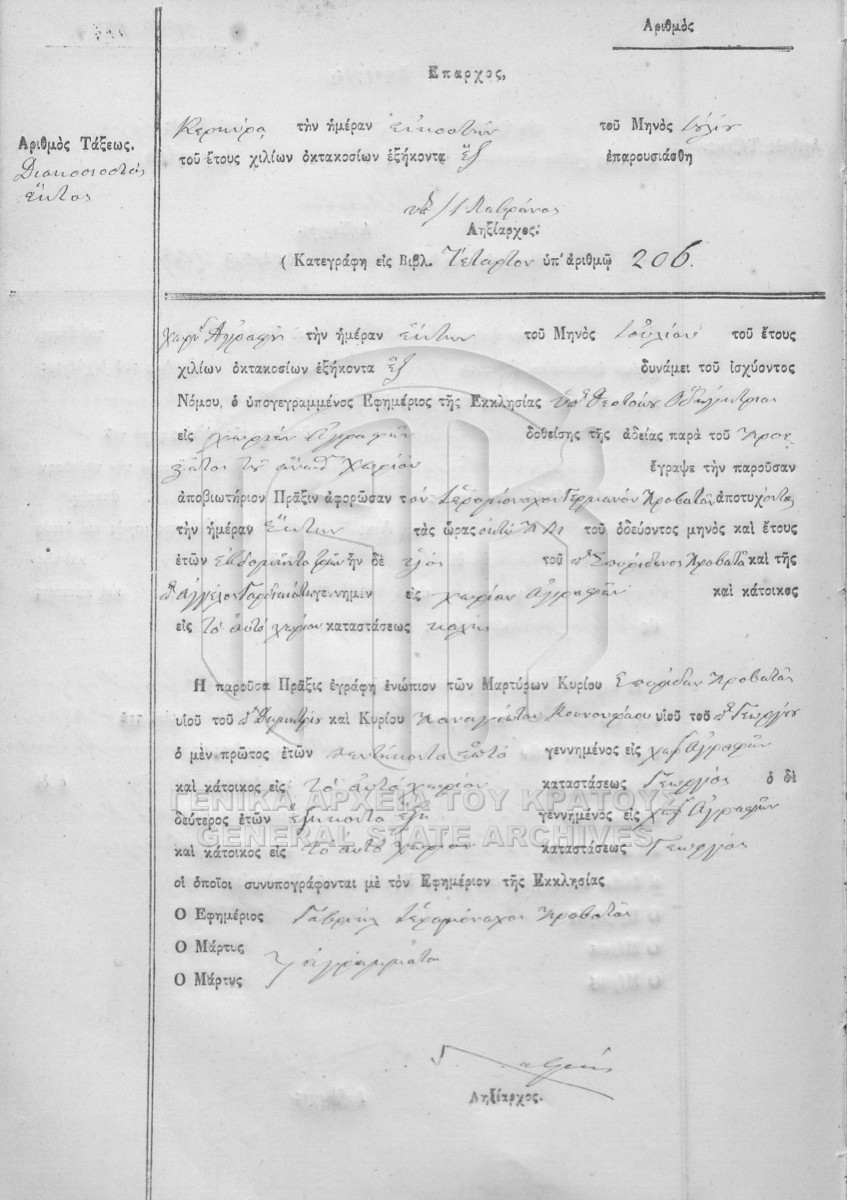 Αριθμὸς
Επαρχος,
Αριθμὸς Τάξεως.
Διακοσιοστὸς
ἕκτος
Κερκύρα τὴν ἡμέραν εἰκοστὴν τοῦ Μηνὸς Ιουλίου
τοῦ ἔτους χιλίων ὀκτακοσίων ἑξήκοντα ἓξ ἐπαρουσιάσθη
Ληξίαρχος.
( Κατεγράφη εἰς Βιβλ. Τέταρτον ὑπ' ἀριθμῷ 206.
Χωρίον Αγραφῆ τὴν ἡμέραν ἕκτην τοῦ Μηνὸς Ιουλίου τοῦ ἔτους
χιλίων ὀκτακοσίων ἑξήκοντα ἓξ δυνάμει τοῦ ἰσχύοντος
Νόμου, ὁ ὑπογεγραμμένος Εφημέριος τῆς Εκκλησίας Οδηγητρίας
εἰς χωρίον Αγραφῶν δοθείσης τῆς ἀδείας παρὰ τοῦ Προε
ξάτος τοῦ χωρίου ἔγραψε τὴν παροῦσαν
ἀποβιωτήριον Πρᾶξιν ἀφορῶσαν τὸν Ιερομόναχον Γερμανὸν Προβατᾶν ἀποτυχόντα
τὴν ἡμέραν ἕκτην τὰς ὥρας ὀκτὼ Π.Μ. τοῦ ὁδεύοντος μηνὸς καὶ ἔτους
ἐτῶν ἑβδομήντα ἦν δὲ υἱὸς τοῦ Σπυρίδωνος Προβατᾶ καὶ τῆς
γεννημεν εἰς χωρίον Αγραφῶν καὶ κάτοικος
εἰς τὸ αὐτὸ χωρίον καταστάσεως καλῆς
Η παροῦσα Πρᾶξις ἐγράφη ἐνώπιον τῶν Μαρτύρων Κυρίου Σπυρίδων Προβατᾶς
υἱοῦ τοῦ Δημητρίου καὶ Κυρίου Παναγιώτου υἱοῦ τοῦ Γεωργίου
ὁ μὲν πρῶτος ἐτῶν πεντήκοντα ἑπτὰ γεννημένος εἰς χωρ Αγραφῶν
καὶ κάτοικος εἰς τὸ αὐτὸ χωρίον καταστάσεως Γεωργὸς ὁ δὲ
δεύτερος ἐτῶν ἑξήκοντα ἓξ γεννημένος εἰς χωρ Αγραφῶν
καὶ κάτοικος εἰς τὸ αὐτὸ χωρίον καταστάσεως Γεωργὸς
οἱ ὁποῖοι συνυπογράφονται μὲ τὸν Εφημέριον τῆς Εκκλησίας
Ο Εφημέριος Γαβριὴλ Ιερομόναχος Προβατᾶς
Ο Μάρτυς
Ο Μάρτυς ἀγράμματοι
Ληξίαρχος.
ΓΕΝΙΚΑ ΑΡΧΕΙΑ ΤΟΥ ΚΡΑΤΟΥΣ
GENERAL STATE ARCHIVES